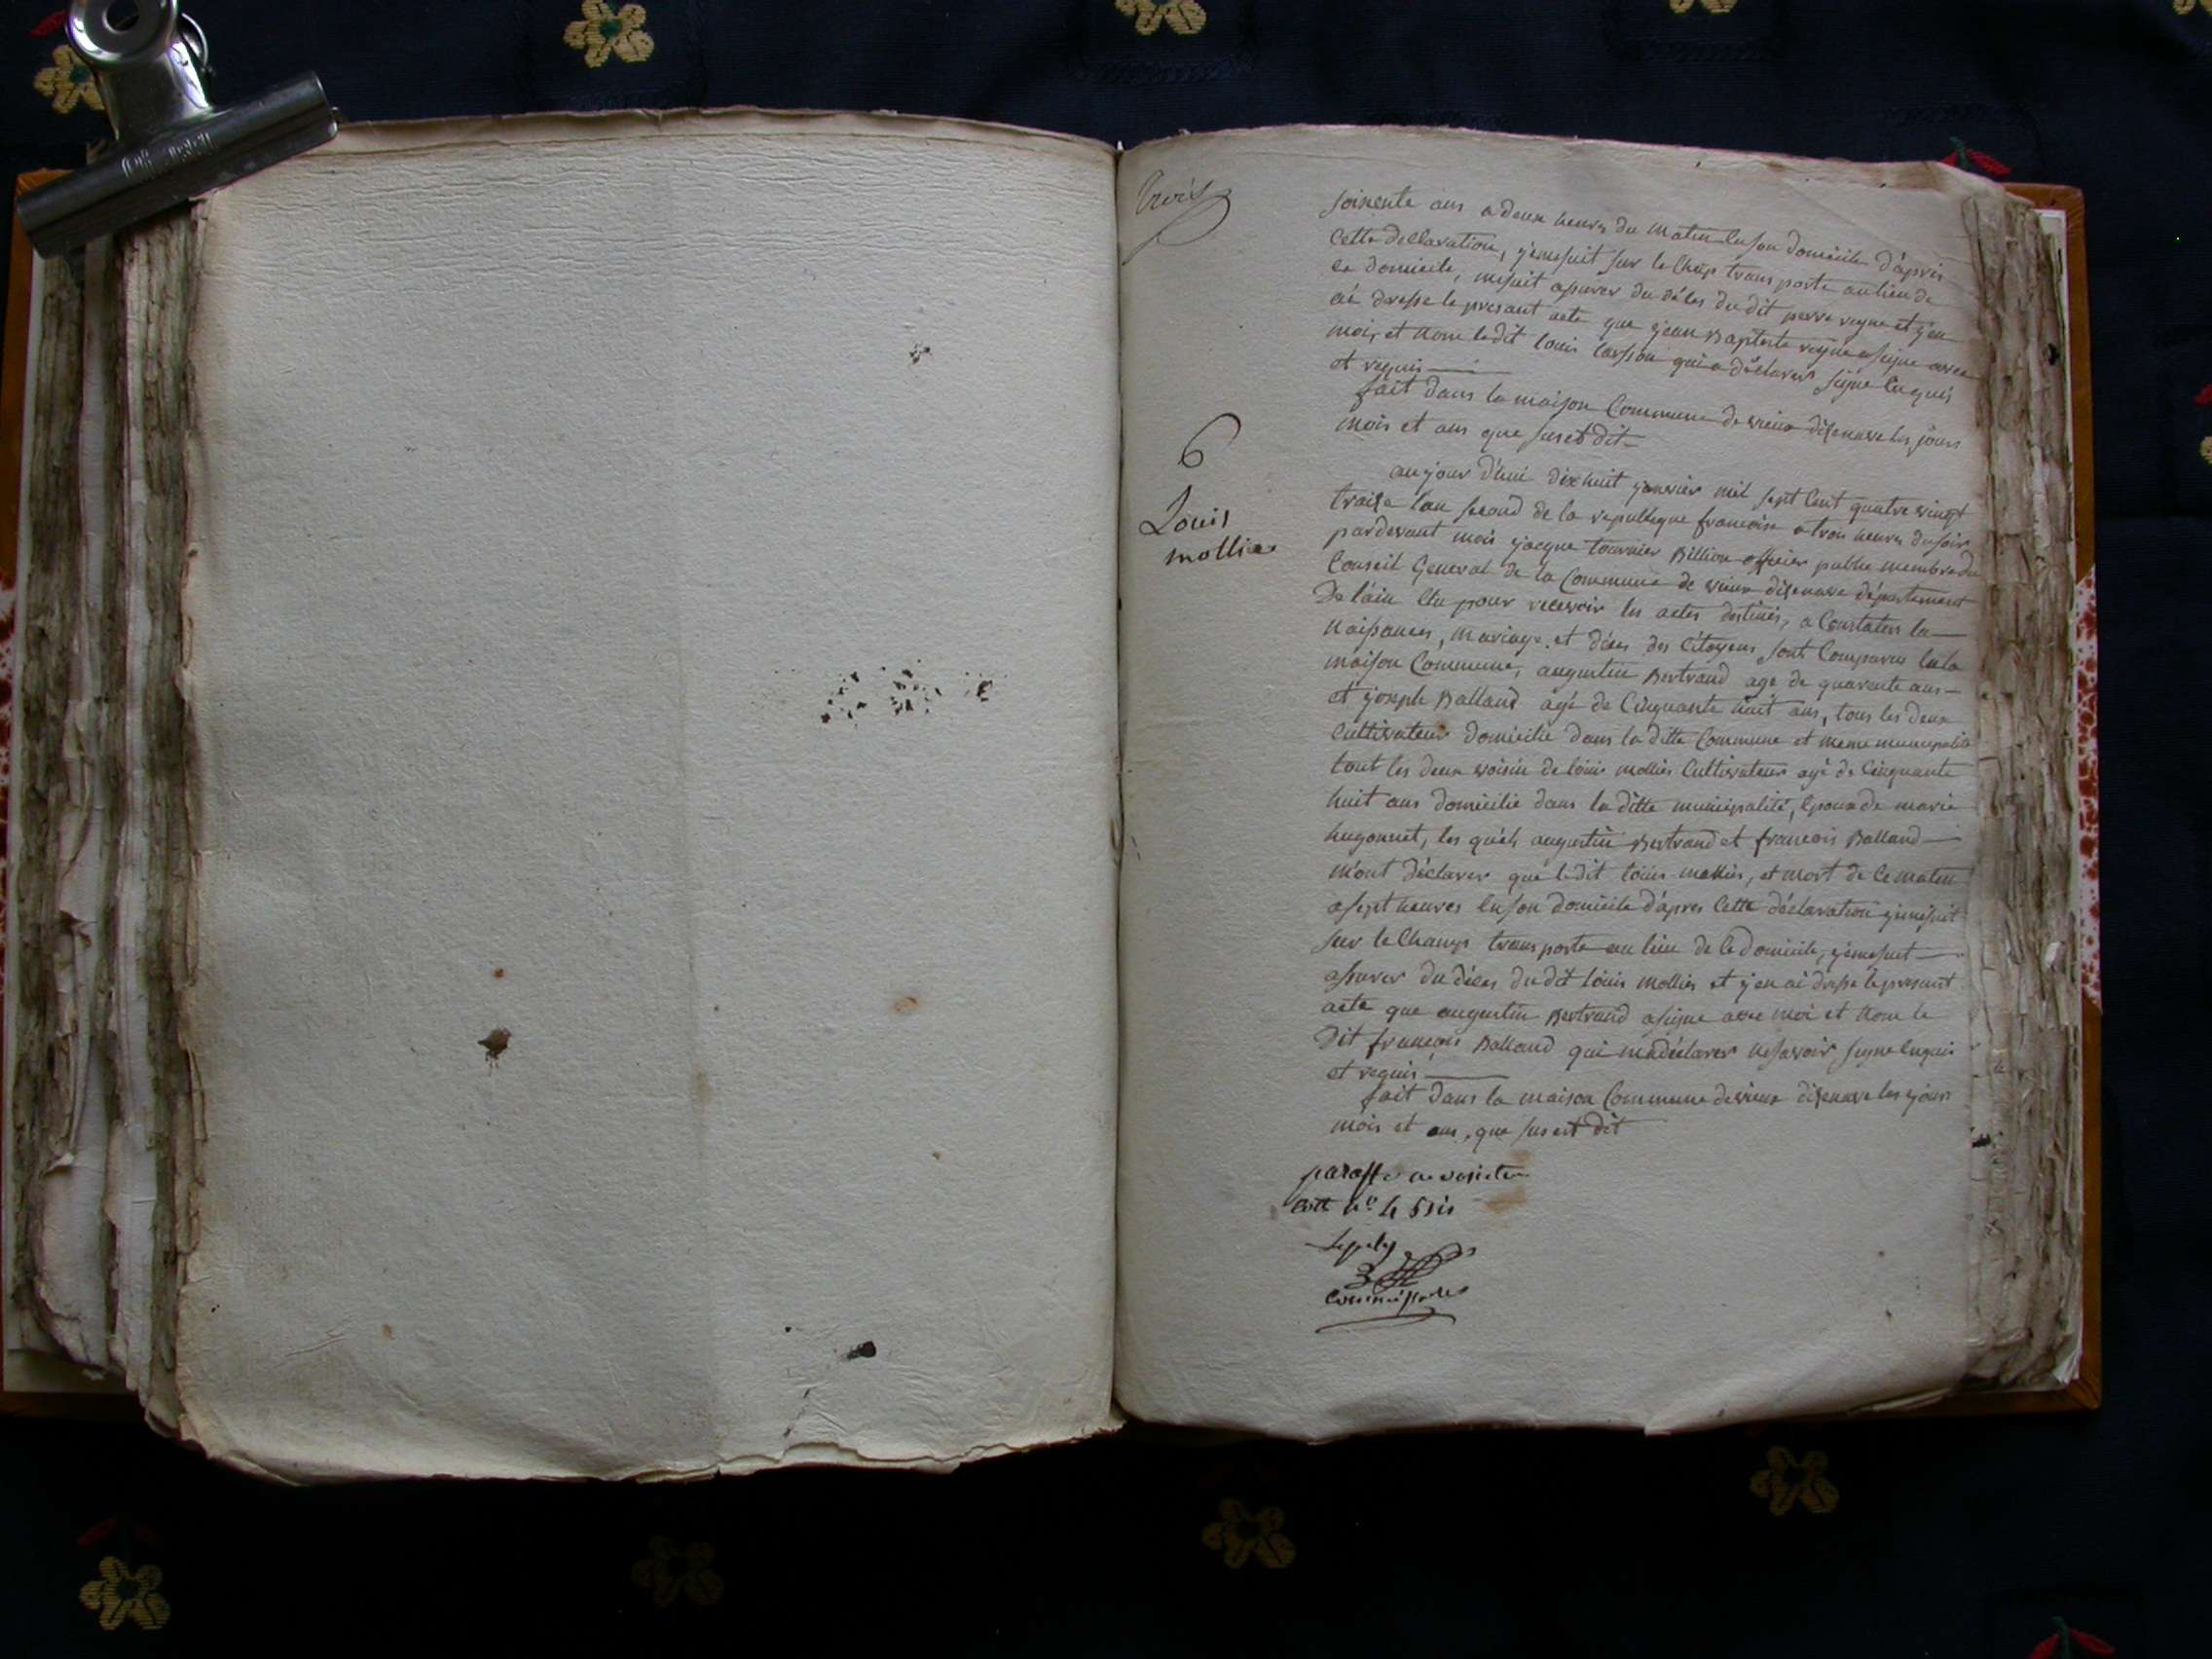 trois
soixente ans a deux heures du matin en son domicile d'après
Cette declaration, j'emesuit sur le champ transporte au lieu de
ce domicile, mesuit assurer du déces du dit pierre reyne et j'en
ai dresse le presant acte que jean Baptiste reyne a signe avec
moi, et nom le dit louis qui a déclarer signe enquis
et requis
fait dans la maison Commune de vieux disenave les jours
mois et ans que sus est dit
6
Louis
mollier
aujour d'hui dixhuit janvier mil sept Cent quatre vingt
traize l'an second de la republique francoise a trois heures du soir
pardevant moi jacque tournier Billion officier public membre du
Conseil General de la Commune de vieux disenave département
De l'ain Elu pour recevoir les actes destinés, a Constater la
naissances, mariage, et déces des Citoyens sont Comparus en la
maison Commune, augustin Bertrand age de quarente ans
et joseph Balland agé de Cinquante huit ans, tous les deux
Cultivateur domicilie dans la ditte Commune et meme municipalité
tout les deux voisin de louis mollier Cultivateur agé de Cinquante
huit ans domicilie dans la ditte municipalité, Epoux de marie
hugonnet, les quels augustin Bertrand et francois Balland
m'ont déclarer que le dit louis mollier, et mort de Ce matin
a sept heures en son domicile d'apres Cette déclaration j'emesuit
sur le Champs transporte au lieu de Ce domicile, j'emesuit
assurer du déces du dit louis mollier et j'en ai dresse le presant
acte que augustin Bertrand a signe avec moi et nom le
Dit francois Balland qui m'a déclarer ne savoir signe enquis
et requis
fait dans la maison Commune de vieux disenave les jours
mois et ans, que sus est dit
paraffe ne varietur
Cotté n° 4
commissaire